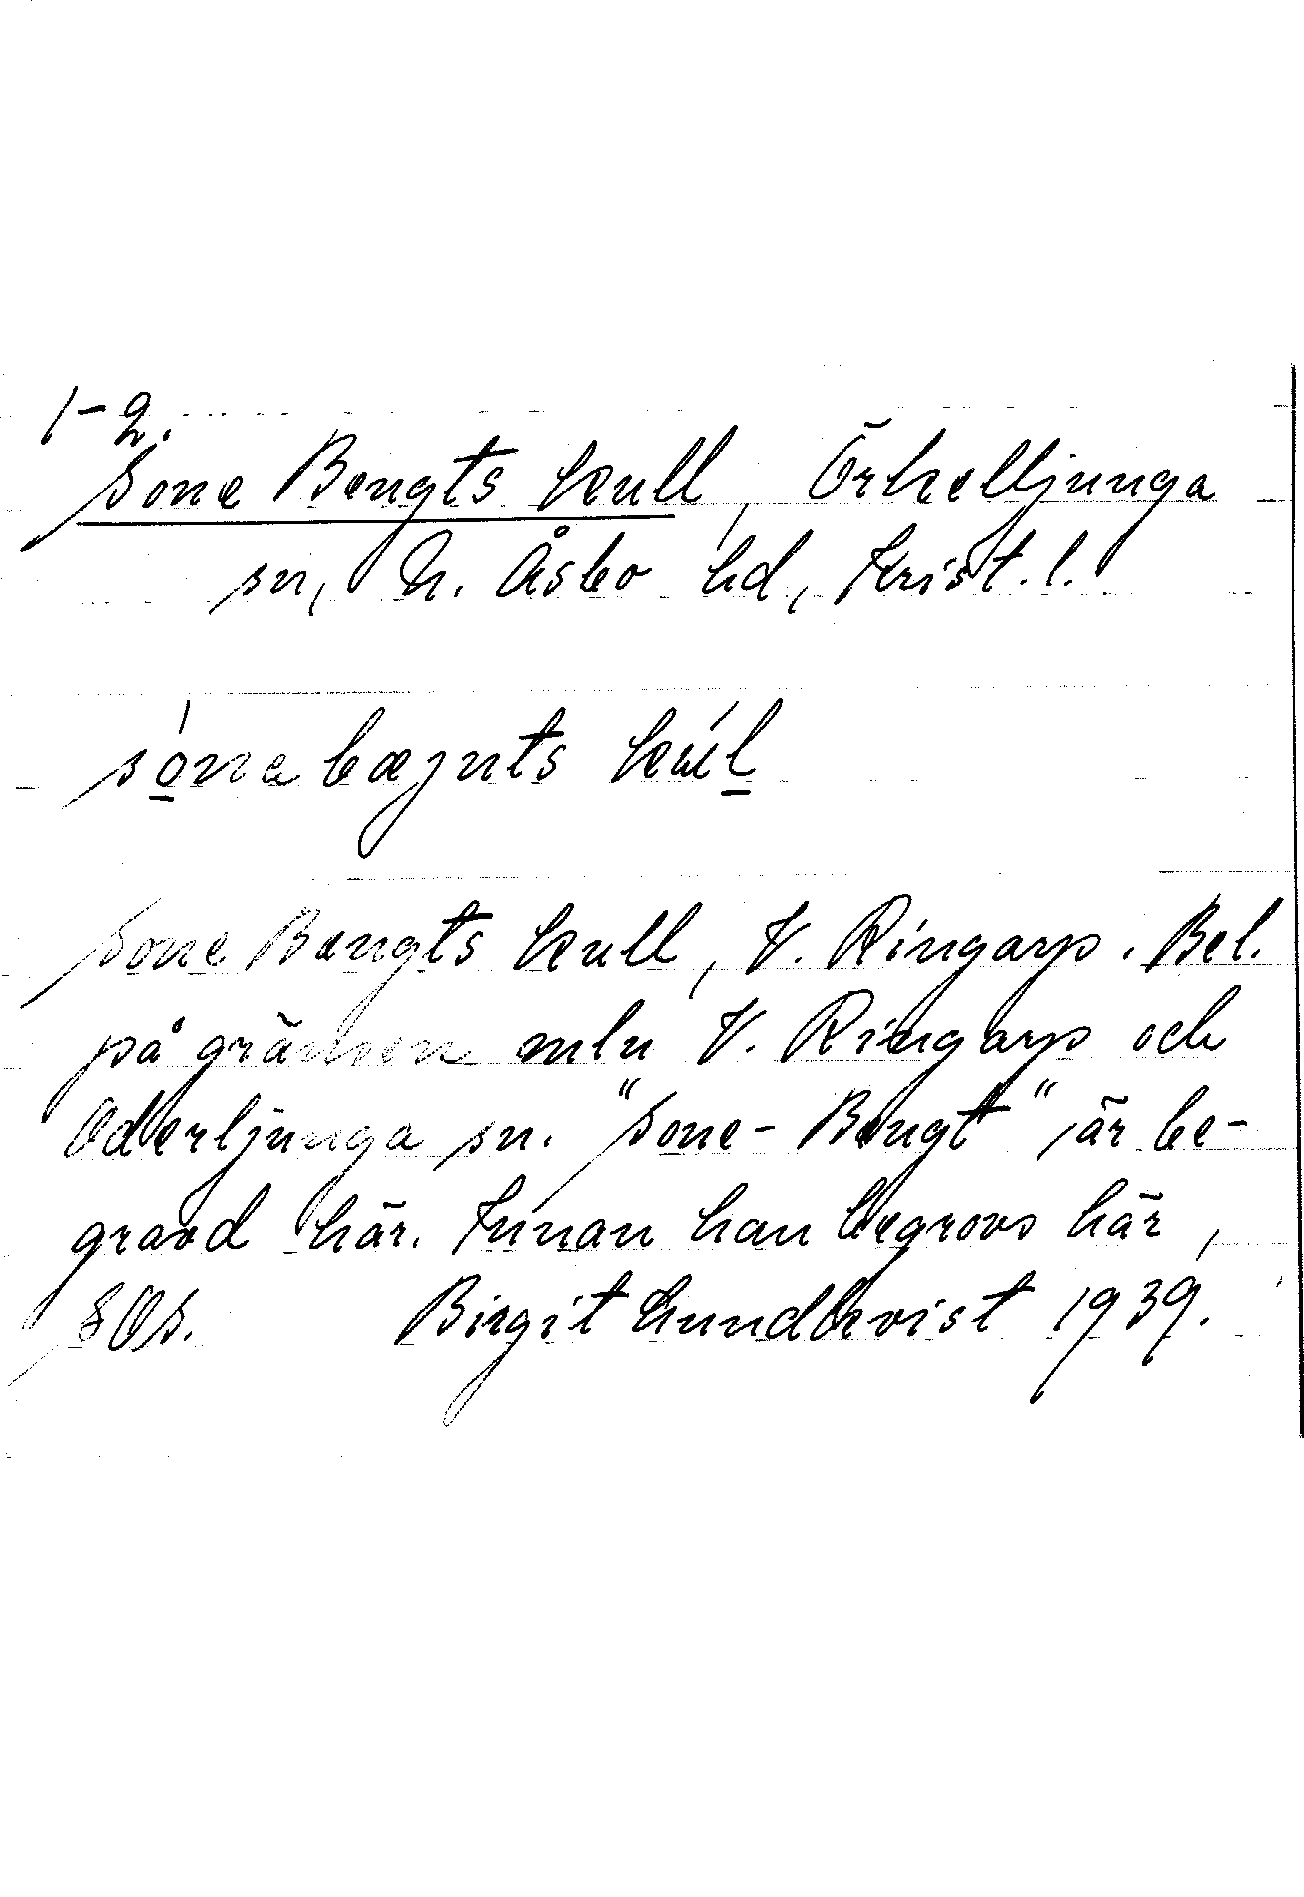 1-2.
Sone Bengts kull, Örkelljunga
sn, N. Åsbo hd, Krist. l.
sónabæŋnts kúl
Sone Bengts kull, V. Ringarp. Bel.
på gränsen mln V. Ringarp och
Oderljunga sn. "Sone-Bengt" är be-
gravd här. Innan han begrovs här,
SOs. Birgit Lundkvist 1939.